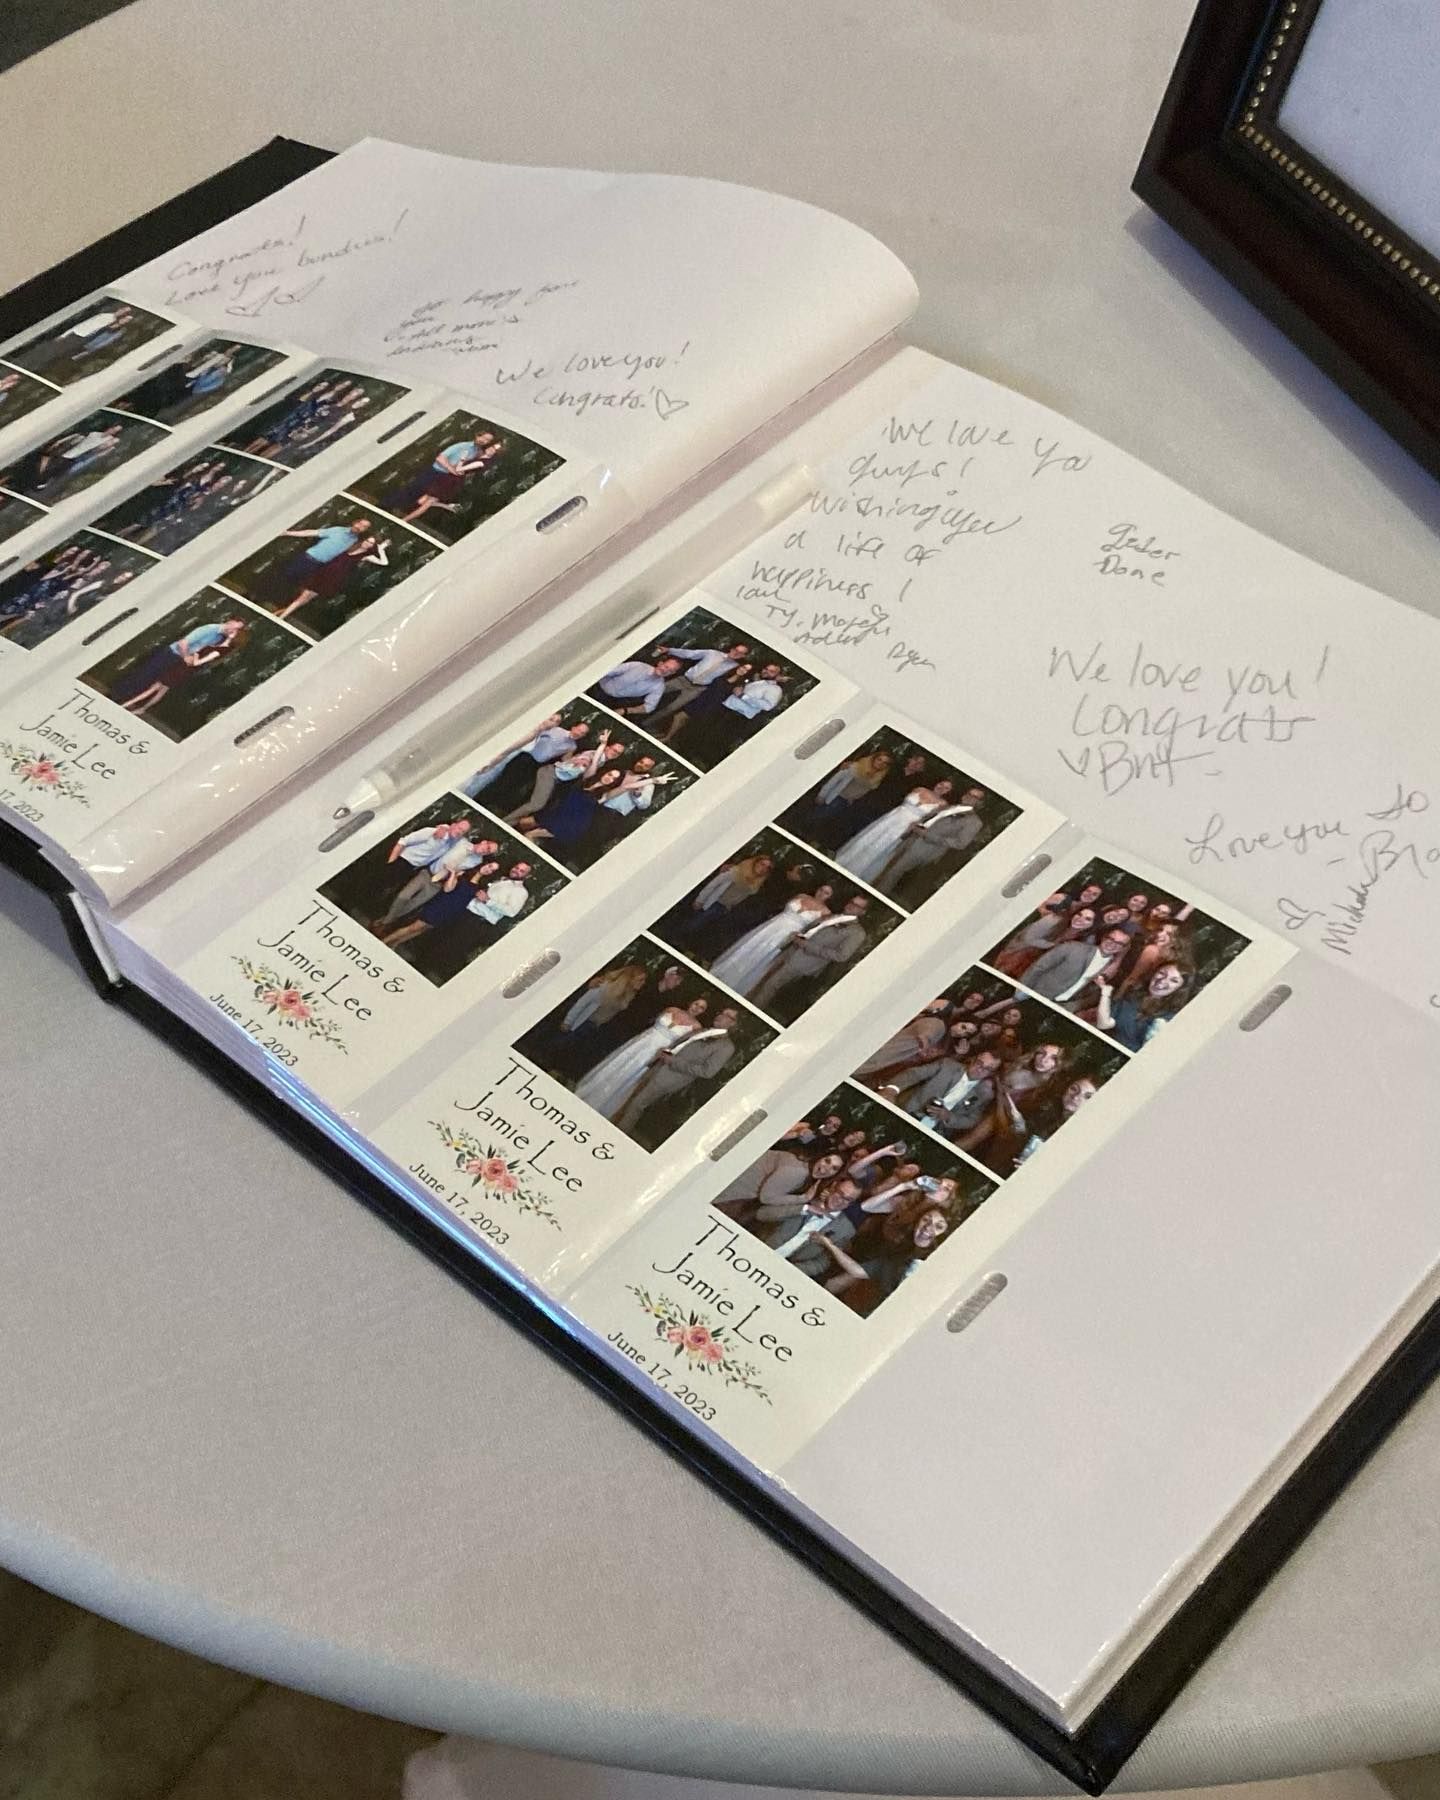 Congrats!
Love you bunches!
happy
We love you!
Congrats!
Thomas &
Jamie Lee
17, 2023
We love ya
guys!
Wishing you
a life of
happiness!
Ty,
We love you!
Congrats
Love you so
Michele
Thomas &
Jamie Lee
June 17, 2023
Thomas &
Jamie Lee
June 17, 2023
Thomas &
Jamie Lee
June 17, 2023